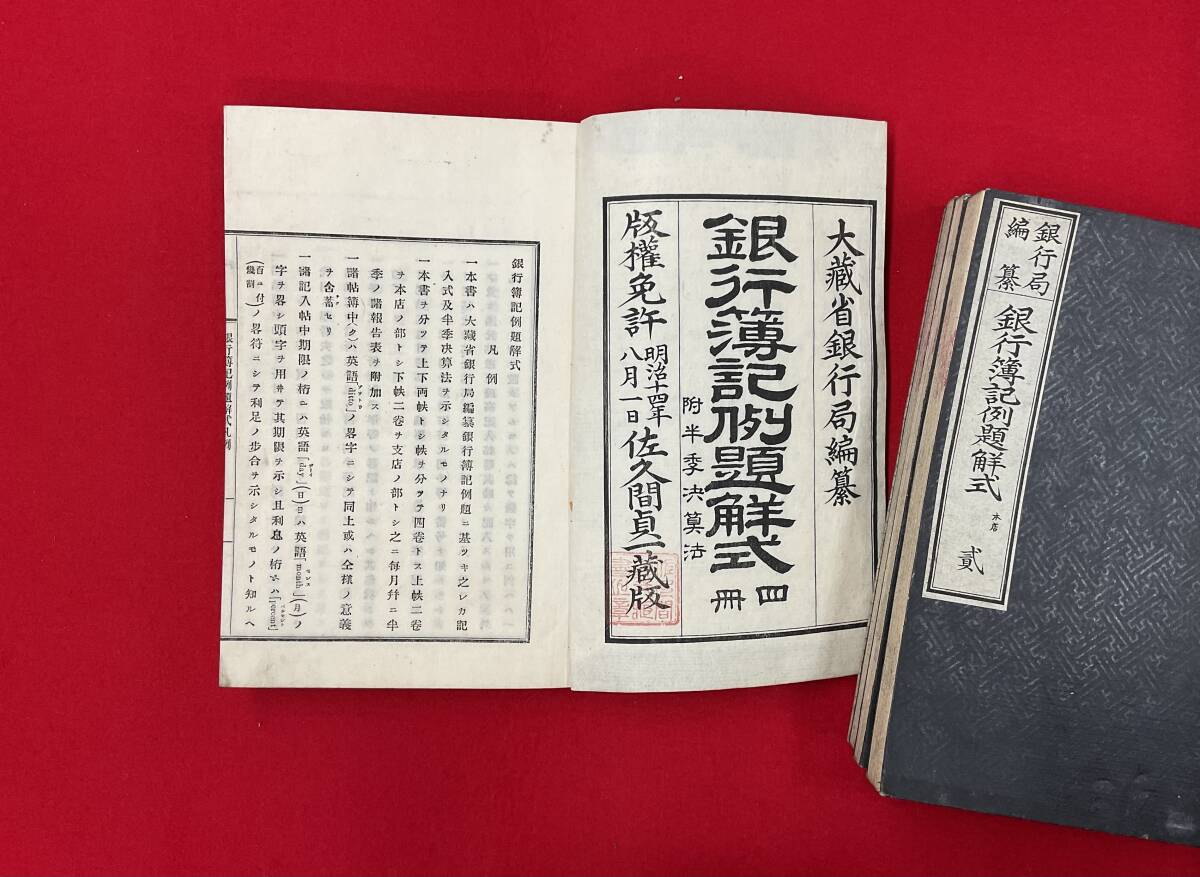 大藏省銀行局編纂
銀行簿記例題解式 四冊
附半季決算法
版權免許 明治十四年八月一日 佐久間貞一藏版
銀行簿記例題解式
凡例
一本書ハ大藏省銀行局編纂銀行簿記例題ニ基ツキ之レカ記
入式及半季決算法ヲ示シタルモノナリ
一本書ヲ分ツテ上下両帙トシ帙ヲ分ツテ四卷トス上帙二卷
ヲ本店ノ部トシ下帙二卷ヲ支店ノ部トシ之ニ毎月幷ニ半
季ノ諸報告表ヲ附加ス
一諸帖簿中(〃)ハ英語「ditto」ノ畧字ニシテ同上或ハ仝樣ノ意義
ヲ含蓄セリ
一諸記入帖中期限ノ桁ニハ英語「day」(日)ハ英語「month」(月)ノ
字ヲ畧シ頭字ヲ用ヰテ其期限ヲ示シ且利息ノ桁ニハ「percent」
(百ニ付幾割)ノ畧符ニシテ利足ノ步合ヲ示シタルモノト知ルヘ
銀行簿記例題解式凡例
銀行局編纂
銀行簿記例題解式 本店 貳